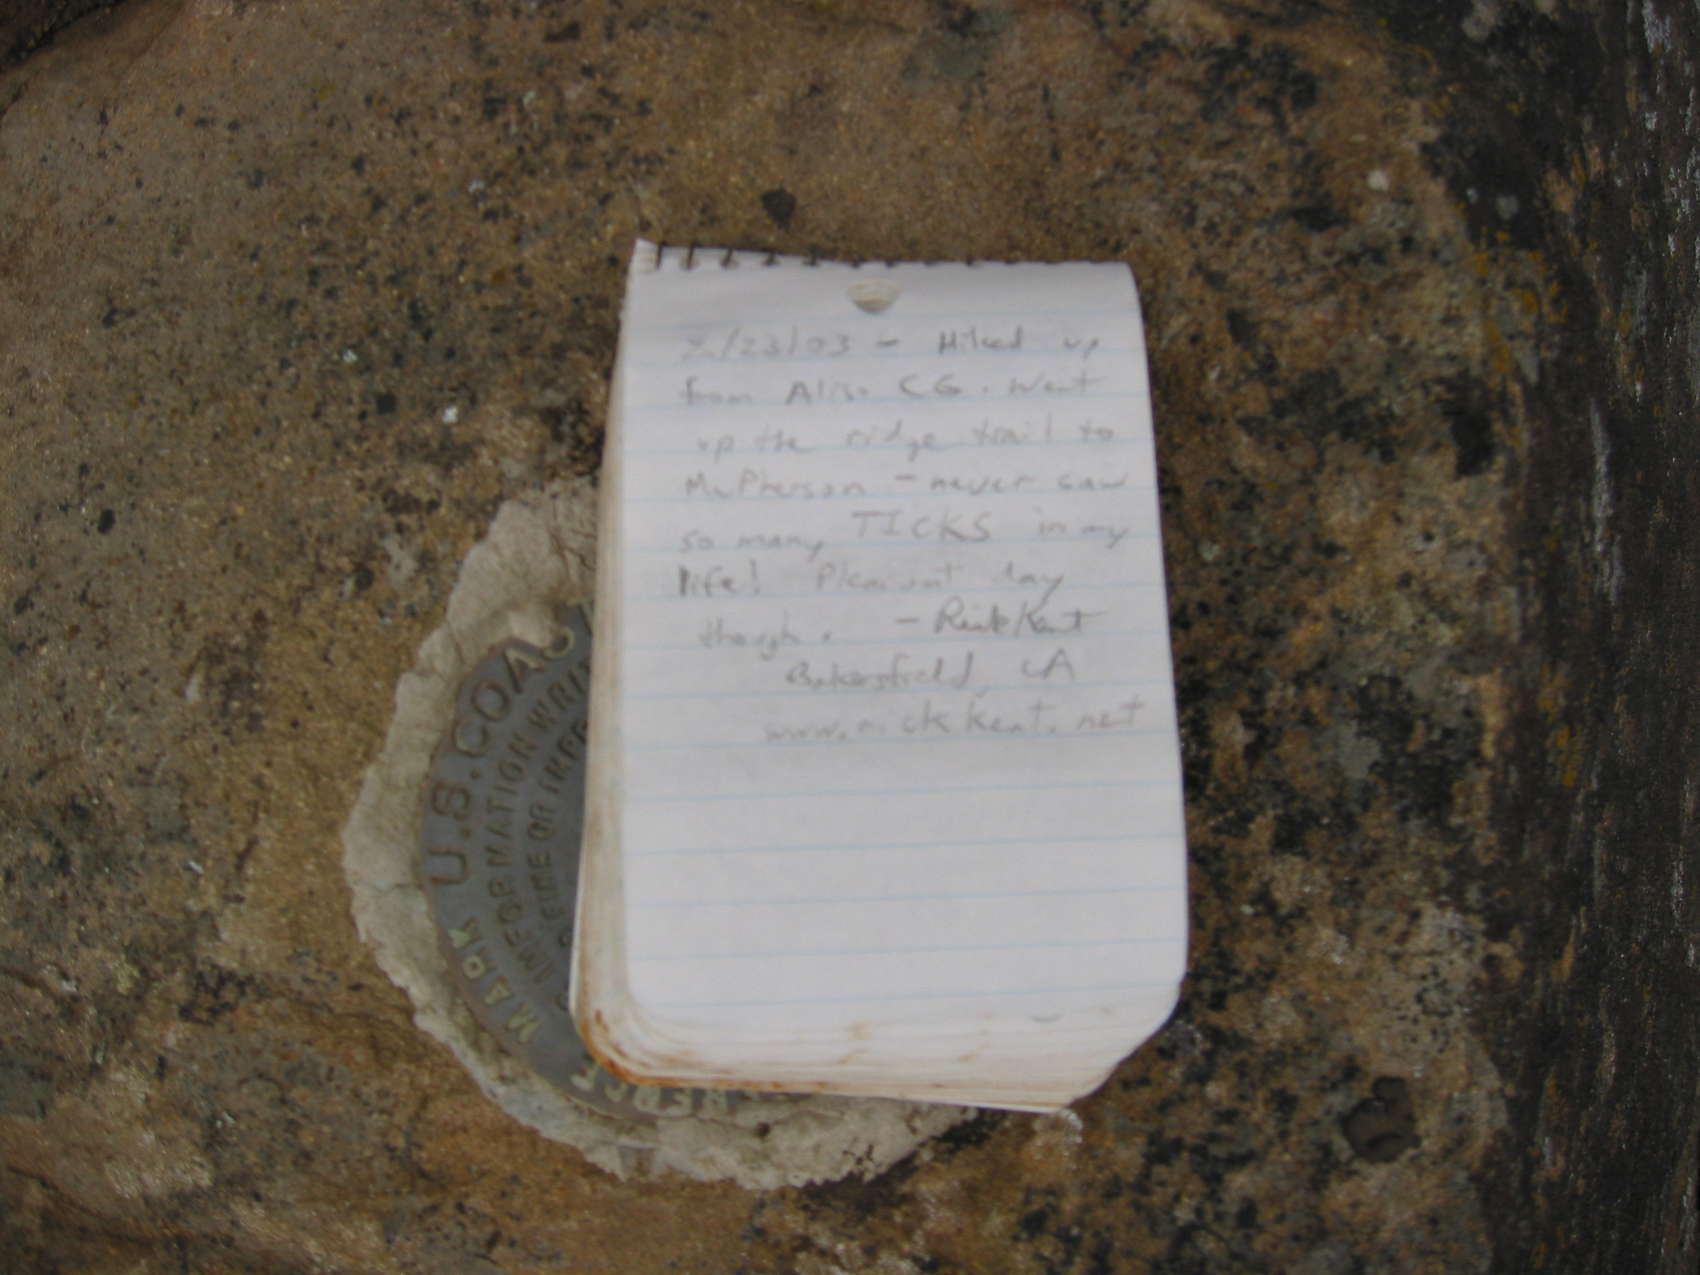 2/23/03 - Hiked up
from Aliso CG. Went
up the ridge trail to
McPherson - never saw
so many TICKS in my
life! Pleasant day
though. - Rick Kent
Bakersfield, CA
www.rickkent.net
U.S. COAS
INFORMATION WRI
MARK